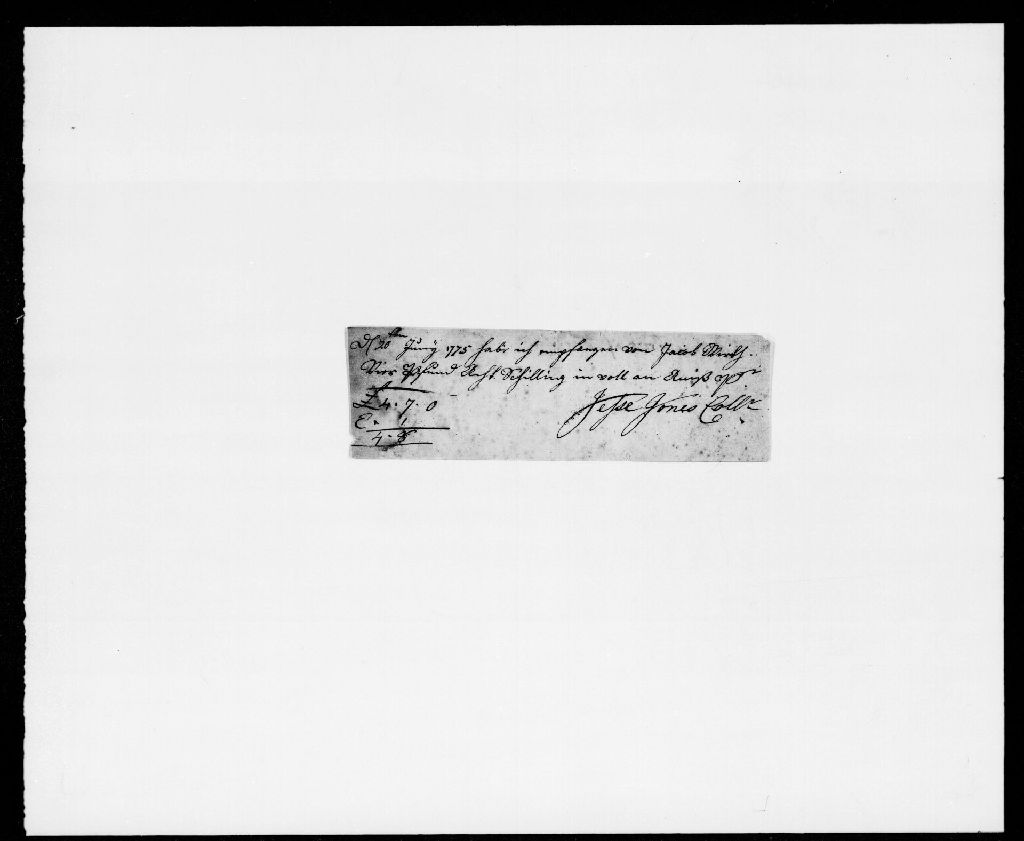 D 20ten Juny 1775 habe ich empfangen von Jacob Wirth.
Vier Pfund Acht Schilling in voll an
£ 4. 7. 0
Jesse Jones Collr
E. 1
4. 8